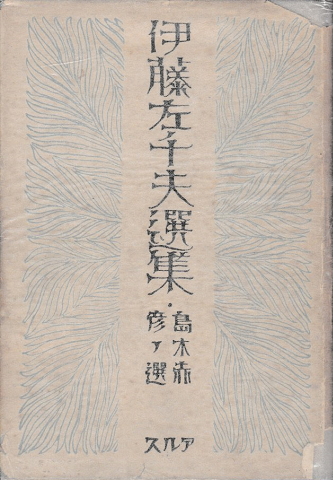 伊藤左千夫選集・
島木赤
彦選
アルス